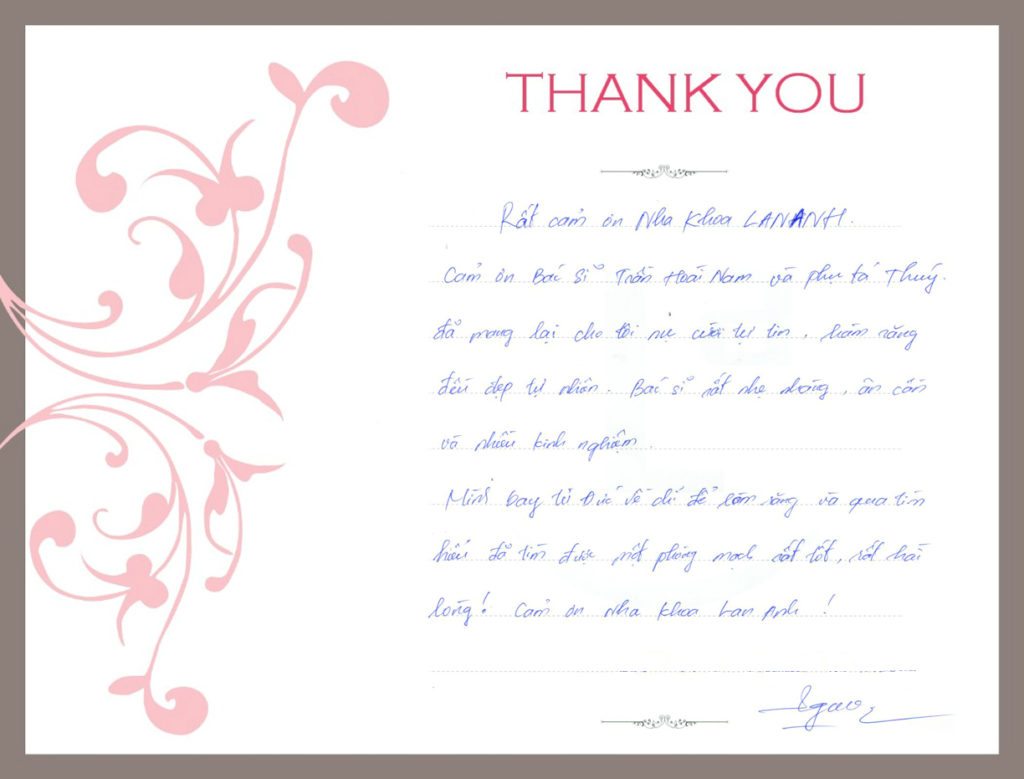 THANK YOU
Rất cảm ơn Nha Khoa LAN ANH.
Cảm ơn Bác Sĩ Trần Hoài Nam và phụ tá Thuý.
đã mang lại cho tôi nụ cười tự tin, hàm răng
đều đẹp tự nhiên. Bác sĩ rất nhẹ nhàng, ân cần
và nhiều kinh nghiệm.
Mình bay từ Đức về chỉ để làm răng và qua tìm
hiểu đã tìm được một phòng mạch rất tốt, rất hài
lòng! Cảm ơn Nha Khoa Lan Anh !